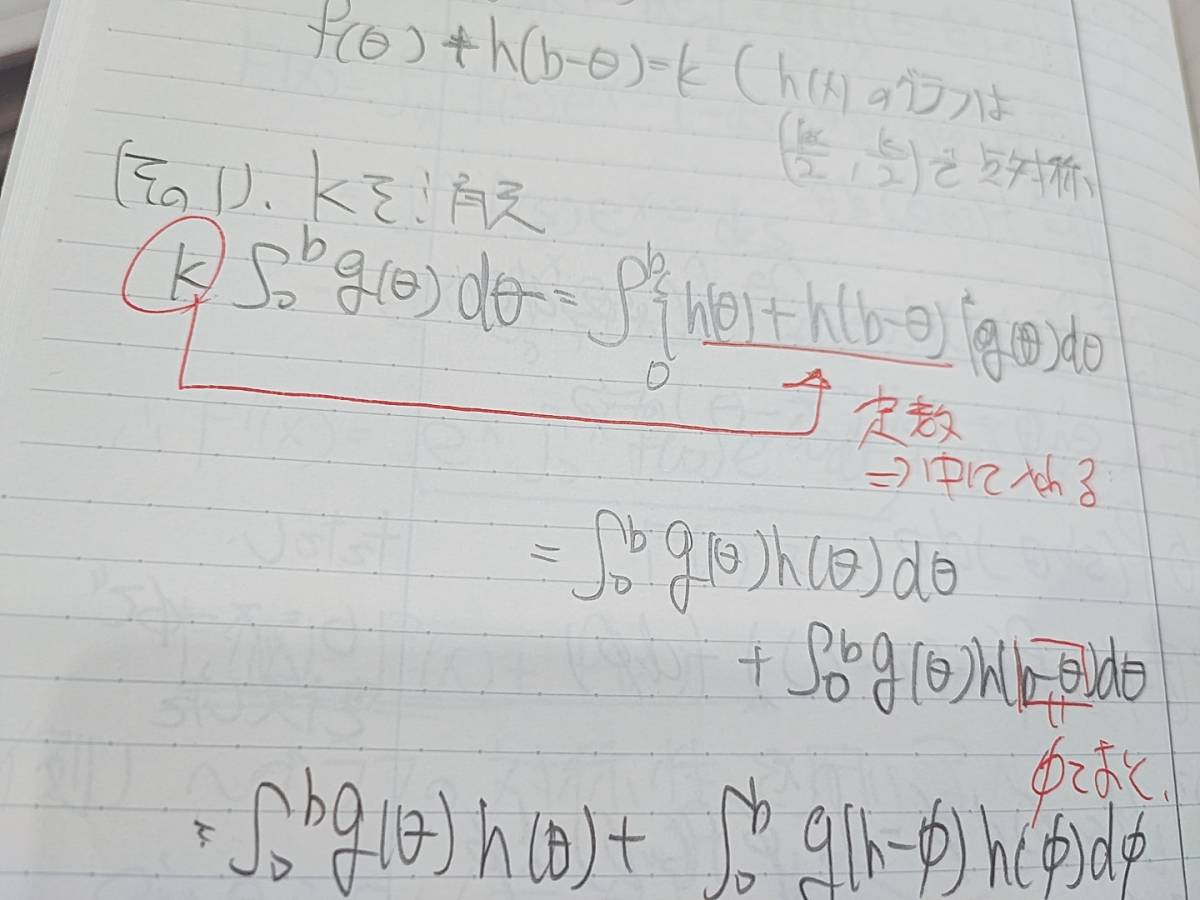 f(θ)+h(b-θ)=k (h(x)のグラフは
(b/2, k/2)を点対称、
(その1). kを消去
k∫₀ᵇg(θ)dθ=∫₀ᵇ{h(θ)+h(b-θ)}g(θ)dθ
定数
⇒中に入れる
=∫₀ᵇg(θ)h(θ)dθ
+∫₀ᵇg(θ)h(b-θ)dθ
φとおく.
=∫₀ᵇg(θ)h(θ)+∫₀ᵇg(h-φ)h(φ)dφ